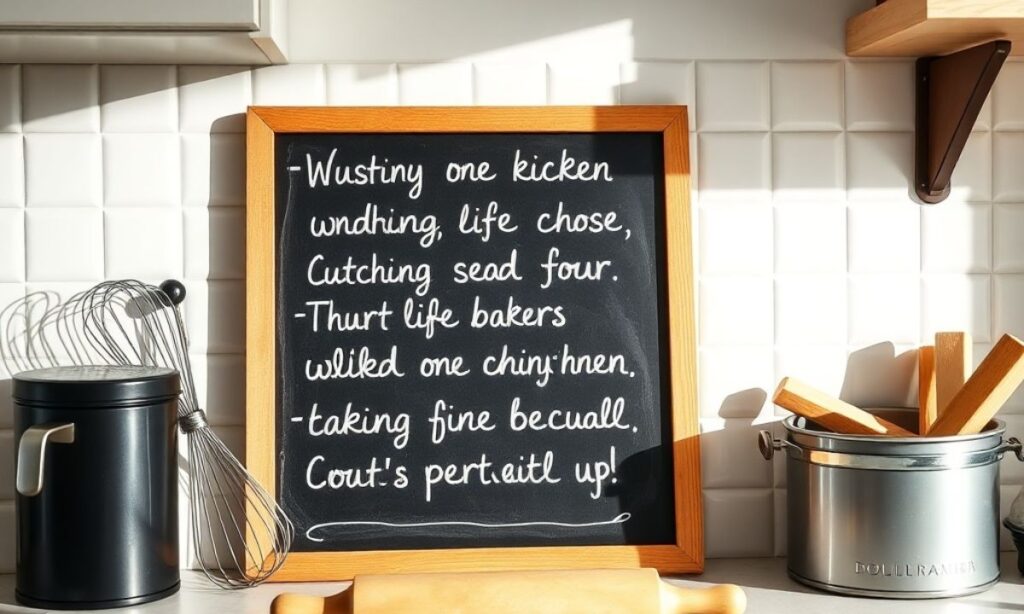 -Wustiny one kicken
wndhing, life chose,
Cutching sead four.
-Thurt life bakers
wlikd one chiny:hnen.
-taking fine becuall.
Cout's pert.eitl up!